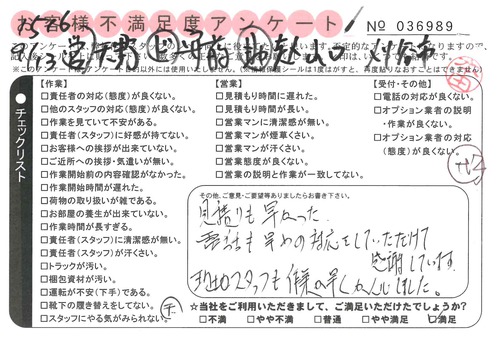 お客様不満足度アンケート
№ 036989
チェックリスト
【作業】
□責任者の対応(態度)が良くない。
□他のスタッフの対応(態度)が良くない。
□作業を見ていて不安がある。
□責任者(スタッフ)に好感が持てない。
□お客様への挨拶が出来ていない。
□ご近所への挨拶・気遣いが無い。
□作業開始前の内容確認がなかった。
□作業開始時間が遅れた。
□荷物の取り扱いが雑である。
□お部屋の養生が出来ていない。
□作業時間が長すぎる。
□責任者(スタッフ)に清潔感が無い。
□責任者(スタッフ)が汗くさい。
□トラックが汚い。
□梱包資材が汚い。
□運転が不安(下手)である。
□靴下の履き替えをしてない。
□スタッフにやる気がみられない。
【営業】
□見積もり時間に遅れた。
□見積もり時間が長い。
□営業マンに清潔感が無い。
□営業マンが煙草くさい。
□営業マンが汗くさい。
□営業態度が良くない。
□営業の説明と作業が一致してない。
【受付・その他】
□電話の対応が良くない。
□オプション業者の説明
・作業が良くない。
□オプション業者の対応
(態度)が良くない。
その他、ご意見・ご要望等ありましたらお書き下さい。
見積りも早かった
電話も早めの対応をしていただけて
感謝しています。
担当スタッフも作業の早く安心しました。
☆当社をご利用いただきまして、ご満足いただけたでしょうか?
□不満 □やや不満 □普通 □やや満足 □満足